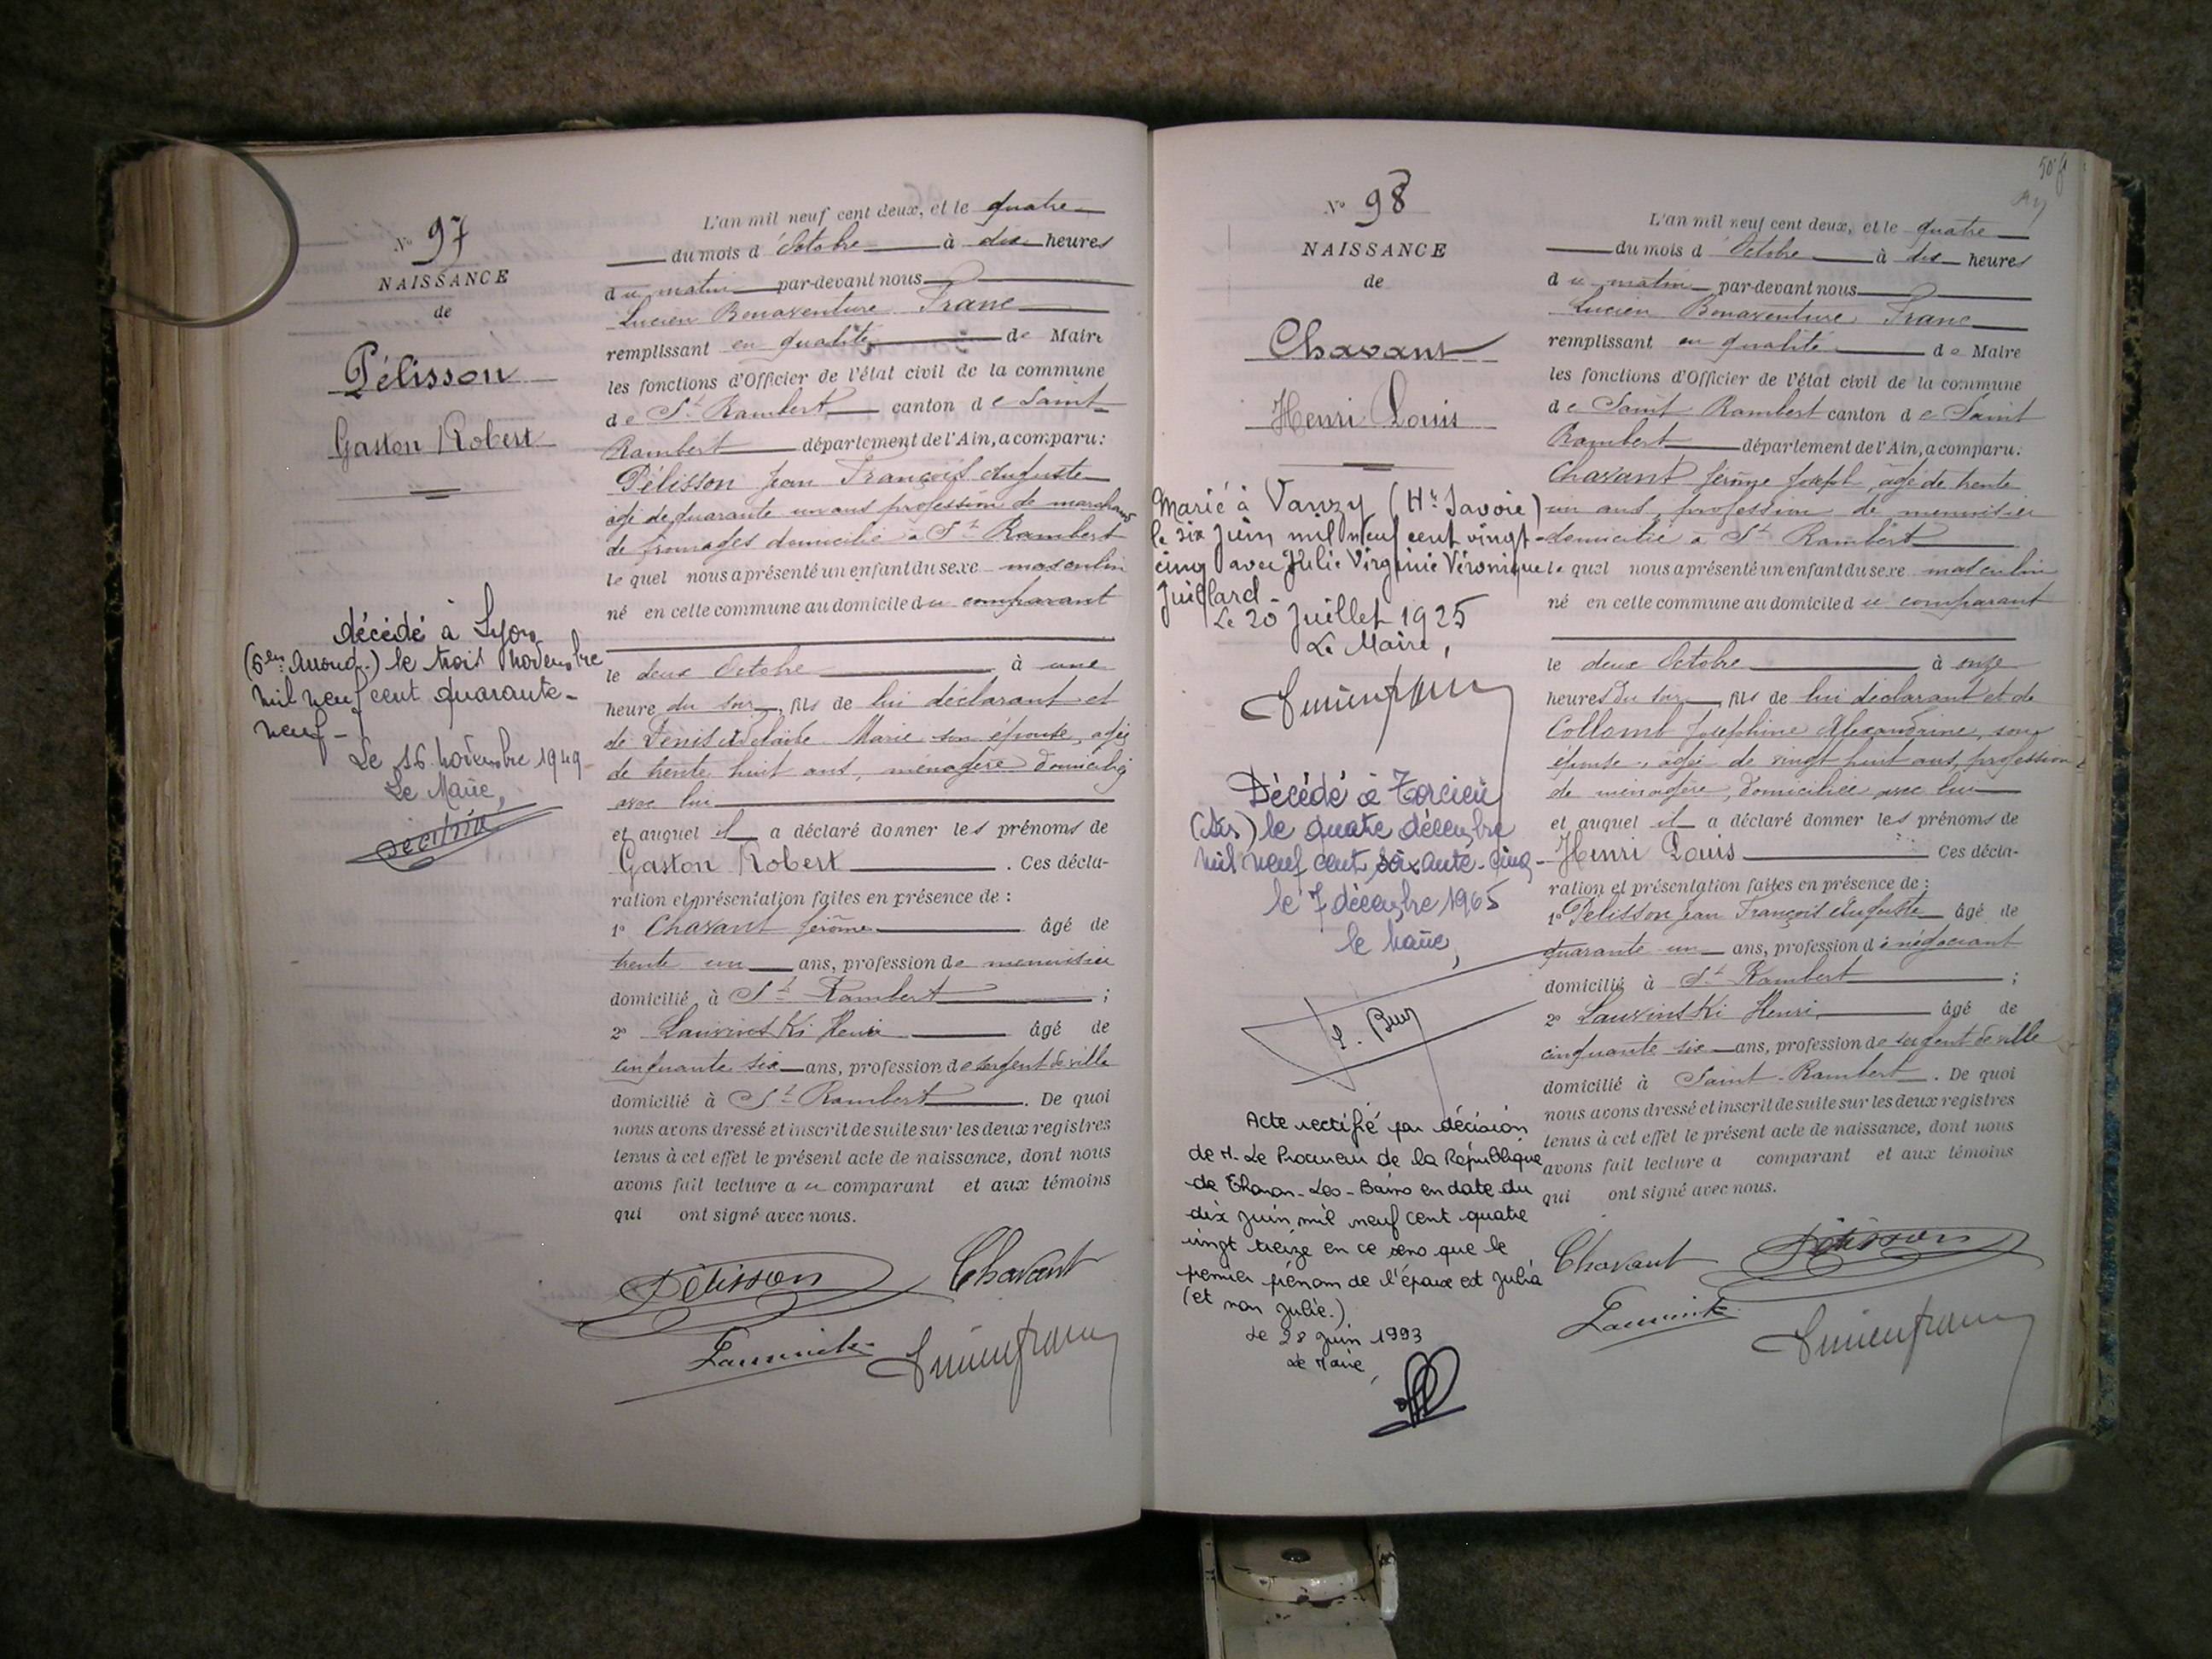 N° 97
NAISSANCE
de
Pélisson
Gaston Robert
décédé à Lyon
(6em Arrond.) le trois Novembre
mil neuf cent quarante-
neuf -
Le 16 novembre 1949
Le Maire,
L'an mil neuf cent deux, et le quatre
du mois d'Octobre à dix heures
du matin par-devant nous
Lucien Bonaventure Franc
remplissant en qualité de Maire
les fonctions d'Officier de l'état civil de la commune
de St Rambert canton de Saint-
Rambert département de l'Ain, a comparu:
Pélisson Jean François Auguste
âgé de quarante un ans profession de marchand
de fromages domicilié à St Rambert
lequel nous a présenté un enfant du sexe masculin
né en cette commune au domicile du comparant
le deux Octobre à une
heure du soir, fils de lui déclarant et
de Denis Adelaïde Marie son épouse, agée
de trente huit ans, ménagère domiciliée
avec lui
et auquel il a déclaré donner les prénoms de
Gaston Robert. Ces décla-
ration et présentation faites en présence de :
1° Chavant Jérôme âgé de
trente un ans, profession de menuisier
domicilié à St Rambert ;
2° Lauvinski Henri âgé de
cinquante six ans, profession de sergent de ville
domicilié à St Rambert. De quoi
nous avons dressé et inscrit de suite sur les deux registres
tenus à cet effet le présent acte de naissance, dont nous
avons fait lecture au comparant et aux témoins
qui ont signé avec nous.
Pélisson Chavant
Lucien Franc
N° 98
NAISSANCE
de
Chavant
Henri Louis
Marié à Vanzy (Hte Savoie)
le six Juin mil neuf cent vingt-
cinq avec Julie Virginie Véronique
Juillard -
Le 20 Juillet 1925
Le Maire,
Lucien Franc
Décédé à Torcieu
(Ain) le quatre décembre
mil neuf cent soixante-cinq -
le 7 décembre 1965
le Maire,
Acte rectifié par décision
de M. Le Procureur de la République
de Thonon-Les-Bains en date du
dix juin mil neuf cent quatre
vingt treize en ce sens que le
premier prénom de l'épouse est Julia
(et non Julie.)
Le 28 Juin 1993
Le Maire,
L'an mil neuf cent deux, et le quatre
du mois d'Octobre à dix heures
du matin par-devant nous
Lucien Bonaventure Franc
remplissant en qualité de Maire
les fonctions d'Officier de l'état civil de la commune
de Saint Rambert canton de Saint
Rambert département de l'Ain, a comparu:
Chavant Jérôme Joseph, âgé de trente
un ans, profession de menuisier
domicilié à St Rambert
lequel nous a présenté un enfant du sexe masculin
né en cette commune au domicile du comparant
le deux Octobre à onze
heures du soir, fils de lui déclarant et de
Collomb Joséphine Alexandrine, son
épouse, âgée de vingt huit ans, profession
de ménagère, domiciliée avec lui
et auquel il a déclaré donner les prénoms de
Henri Louis Ces décla-
ration et présentation faites en présence de :
1° Pélisson Jean François Auguste âgé de
quarante un ans, profession de négociant
domicilié à St Rambert ;
2° Lauvinski Henri, âgé de
cinquante six ans, profession de sergent de ville
domicilié à Saint-Rambert. De quoi
nous avons dressé et inscrit de suite sur les deux registres
tenus à cet effet le présent acte de naissance, dont nous
avons fait lecture a comparant et aux témoins
qui ont signé avec nous.
Chavant Pélisson
Lucien Franc